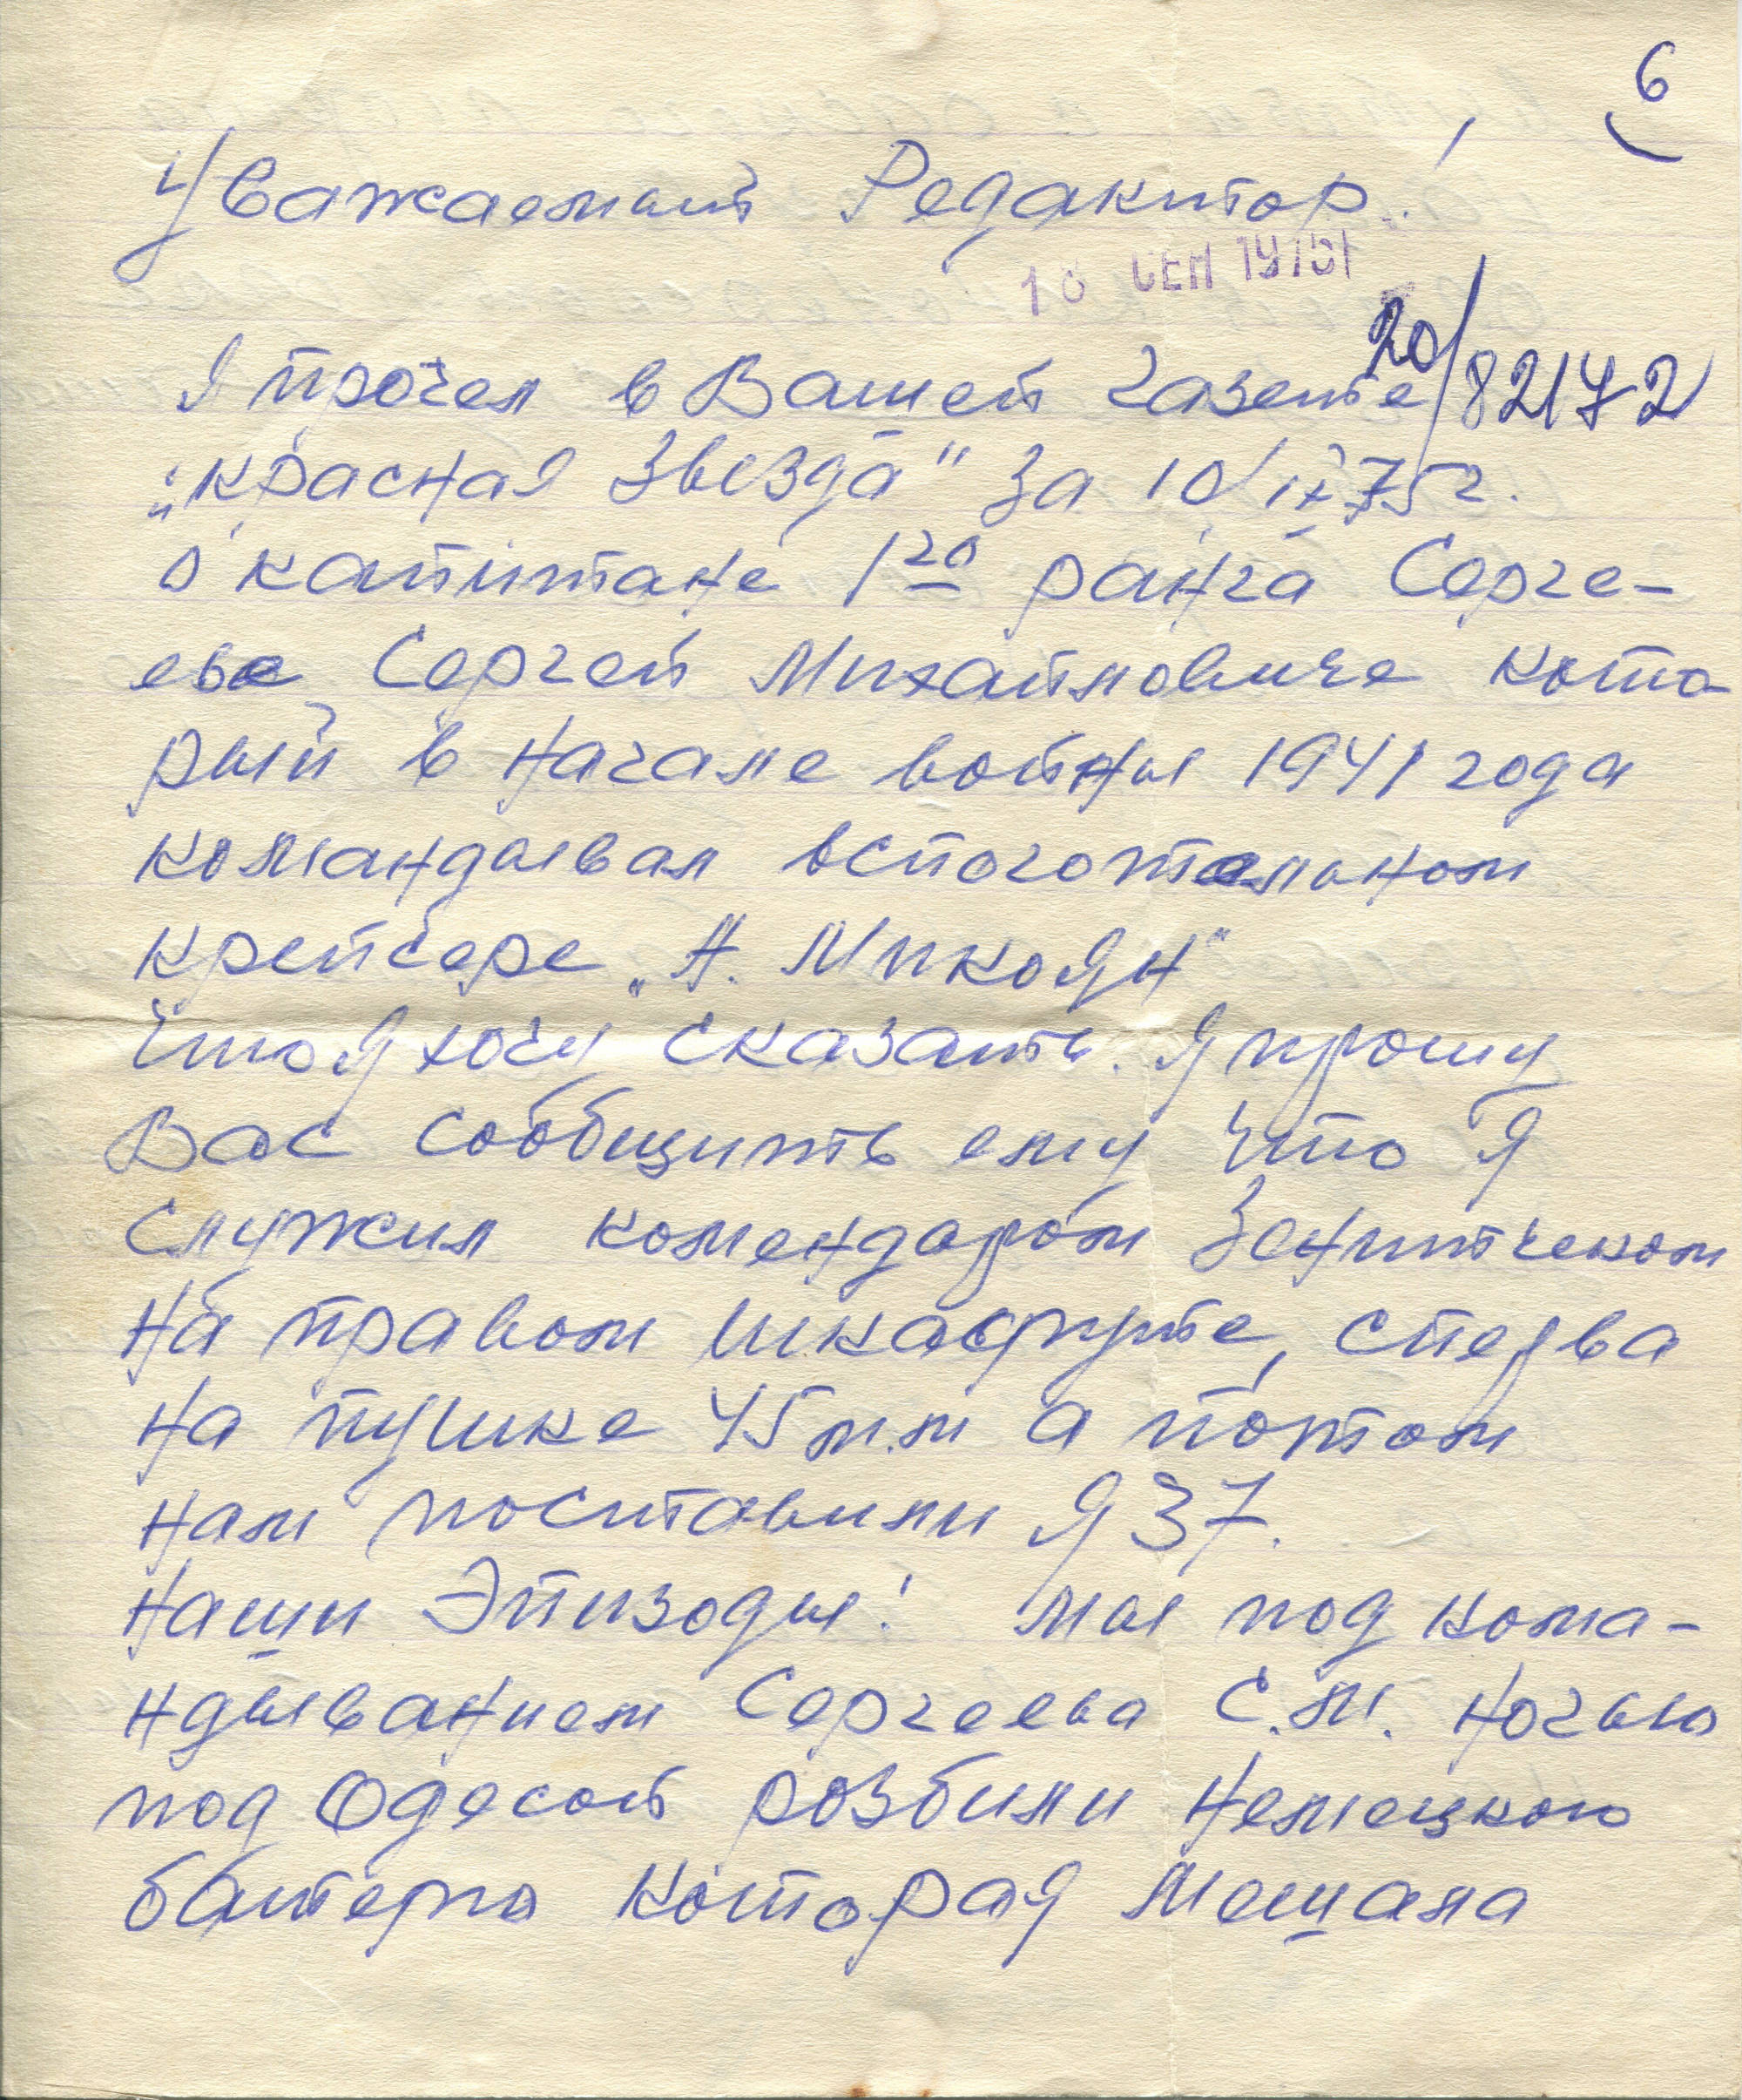 6
Уважаемый Редактор!
СЕН 197
20/82172
Я прочел в Вашей газете
„Красная Звезда" за 10/IX 75 г.
о капитане 1го ранга Серге-
еве Сергей Михайловиче кото-
рый в начале войны 1941 года
командывал вспоготельном
крейсере „А. Микоян"
Что я хочу сказать. Я прошу
Вас сообщить ему что я
служил комендором Зенитчеком
на правом шкафруте, сперва
на пушке 45 м.м а потом
нам поставили Я 37.
Наши Эпизоды! мы под кома-
ндыванием Сергеева С.М. ночью
под Одесой розбили немецкою
батерю которая мешала